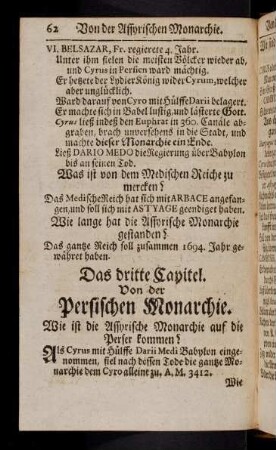 62 Von der Assyrischen Monarchie.
VI. BELSAZAR, Fr. regierete 4. Jahr.
Unter ihm fielen die meisten Völcker wieder ab,
und Cyrus in Persien ward mächtig.
Er hetzte der Lydier König wider Cyrum, welcher
aber unglücklich.
Ward darauf von Cyro mit Hülffe Darii belagert.
Er machte sich in Babel lustig, und lästerte Gott.
Cyrus ließ indeß den Euphrat in 360. Canäle ab-
graben, brach unversehens in die Stadt, und
machte dieser Monarchie ein Ende.
Ließ DARIO MEDO die Regierung über Babylon
bis an seinen Tod.
Was ist von dem Medischen Reiche zu
mercken?
Das Medische Reich hat sich mit ARBACE angefan-
gen, und soll sich mit ASTYAGE geendiget haben.
Wie lange hat die Assyrische Monarchie
gestanden?
Das gantze Reich soll zusammen 1694. Jahr ge-
währet haben.
Das dritte Capitel.
Von der
Persischen Monarchie.
Wie ist die Assyrische Monarchie auf die
Perser kommen?
Als Cyrus mit Hülffe Darii Medi Babylon einge-
nommen, fiel nach dessen Tode die gantze Mo-
narchie dem Cyro alleine zu, A. M. 3412.
Wie